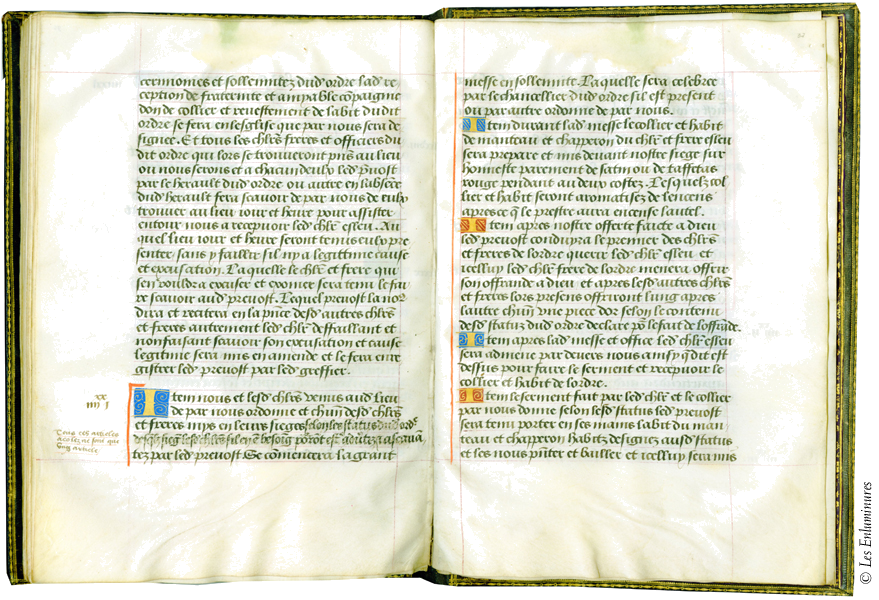 cerimonies et sollennitez dud' ordre lad' re
ception de fraternite et amyable cōpaignie
don de collier et revestement de labit dudit
ordre se fera en lesglise que par nous sera de
signee. Et tous les chlrs freres et officiers du
dit ordre qui lors se trouveront pn̄s au lieu
ou nous serons et a chacun deulx led' pn̄ost
par le herault dud' ordre ou autre en labsēce
dud' herault fera scavoir de par nous de eulx
trouver au lieu iour et heure pour assister
entour nous a recepvoir led' chlr esleu. Au
quel lieu iour et heure seront tenus eulx pre
senter sans y faillir sil ny a legittime cause
et excusation. Laquelle le chlr et frere qui
sen vouldra excuser et exonier sera tenu le fai
re scavoir aud' prevost. Lequel prevost la no
dira et recitera en la pn̄ce desd' autres chlrs
et freres autrement led' chlr deffaillant et
non faisant scavoir son excusation et cause
legitime sera mis en amende et le fera enre
gistrer led' prevost par led' greffier.
xx
iiii i
Item nous et lesd' chlrs venus aud' lieu
de par nous ordonne et chūn desd' chlrs
et freres mys en leurs sieges selon les statuz dud' ord'
Tous ces articles
acolez ne font que
ung article
tez par led' prevost Se comencera la grant
messe en sollennite. Laquelle sera celebree
par le chancellier dud' ordre sil est present
ou par autre ordonne de par nous.
Item durant lad' messe le collier et habit
de manteau et chapperon du chlr et frere esleu
sera prepare et mis devant nostre siege sur
honneste parement de satin ou de taffetas
rouge pendant au deux costez. Lesquelz col
lier et habit seront aromatisez de lencens
apres ce q̄ le prestre aura encense lautel.
Item apres nostre offerte faicte a dieu
led' prevost conduyra le premier des chlrs
et freres de lordre querir led' chlr esleu et
icelluy led' chlr frere de lordre menera offrir
son offrande a dieu et apres lesd' autres chlrs
et freres lors presens offriront lung apres
lautre chūn une piece dor selon le contenu
desd' statuz dud' ordre declare po' le fait de loffrāde.
Item apres lad' messe et office led' chlr esleu
sera admene par devers nous ainsy q̄ dit est
dessus pour faire le serment et recepvoir le
collier et habit de lordre.
Item le serment fait par led' chlr et le collier
par nous donne selon lesd' status led' prevost
sera tenu porter en ses mains labit du man
teau et chapperon habitz designez ausd' status
et les nous pn̄ter et bailler et icelluy sera mis
© Les Enluminures